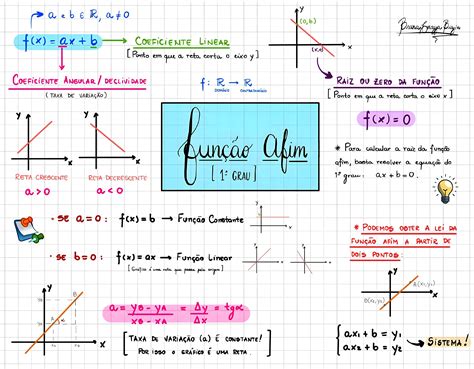 a e b ∈ ℝ, a ≠ 0
f(x) = ax + b
COEFICIENTE LINEAR
[Ponto em que a reta corta o eixo y]
COEFICIENTE ANGULAR / DECLIVIDADE
(TAXA DE VARIAÇÃO)
f: ℝ → ℝ
y
(0,b)
x
RAIZ OU ZERO DA FUNÇÃO
[Ponto em que a reta corta o eixo x]
f(x) = 0
* Para calcular a raiz da função
afim, basta resolver a equação do
1º grau: ax + b = 0.
y
x
RETA CRESCENTE
a > 0
y
x
RETA DECRESCENTE
a < 0
Função Afim
[1º GRAU]
• SE a = 0: f(x) = b → Função Constante
• SE b = 0: f(x) = ax → Função Linear
[Gráfico é uma reta que passa pela origem]
* PODEMOS OBTER A LEI DA
FUNÇÃO AFIM A PARTIR DE
DOIS PONTOS:
a = yB - yA / xB - xA = Δy / Δx = tgα
[TAXA DE VARIAÇÃO (a) É CONSTANTE!
POR ISSO O GRÁFICO É UMA RETA.]
y
x
ax₁ + b = y₁
ax₂ + b = y₂
SISTEMA!